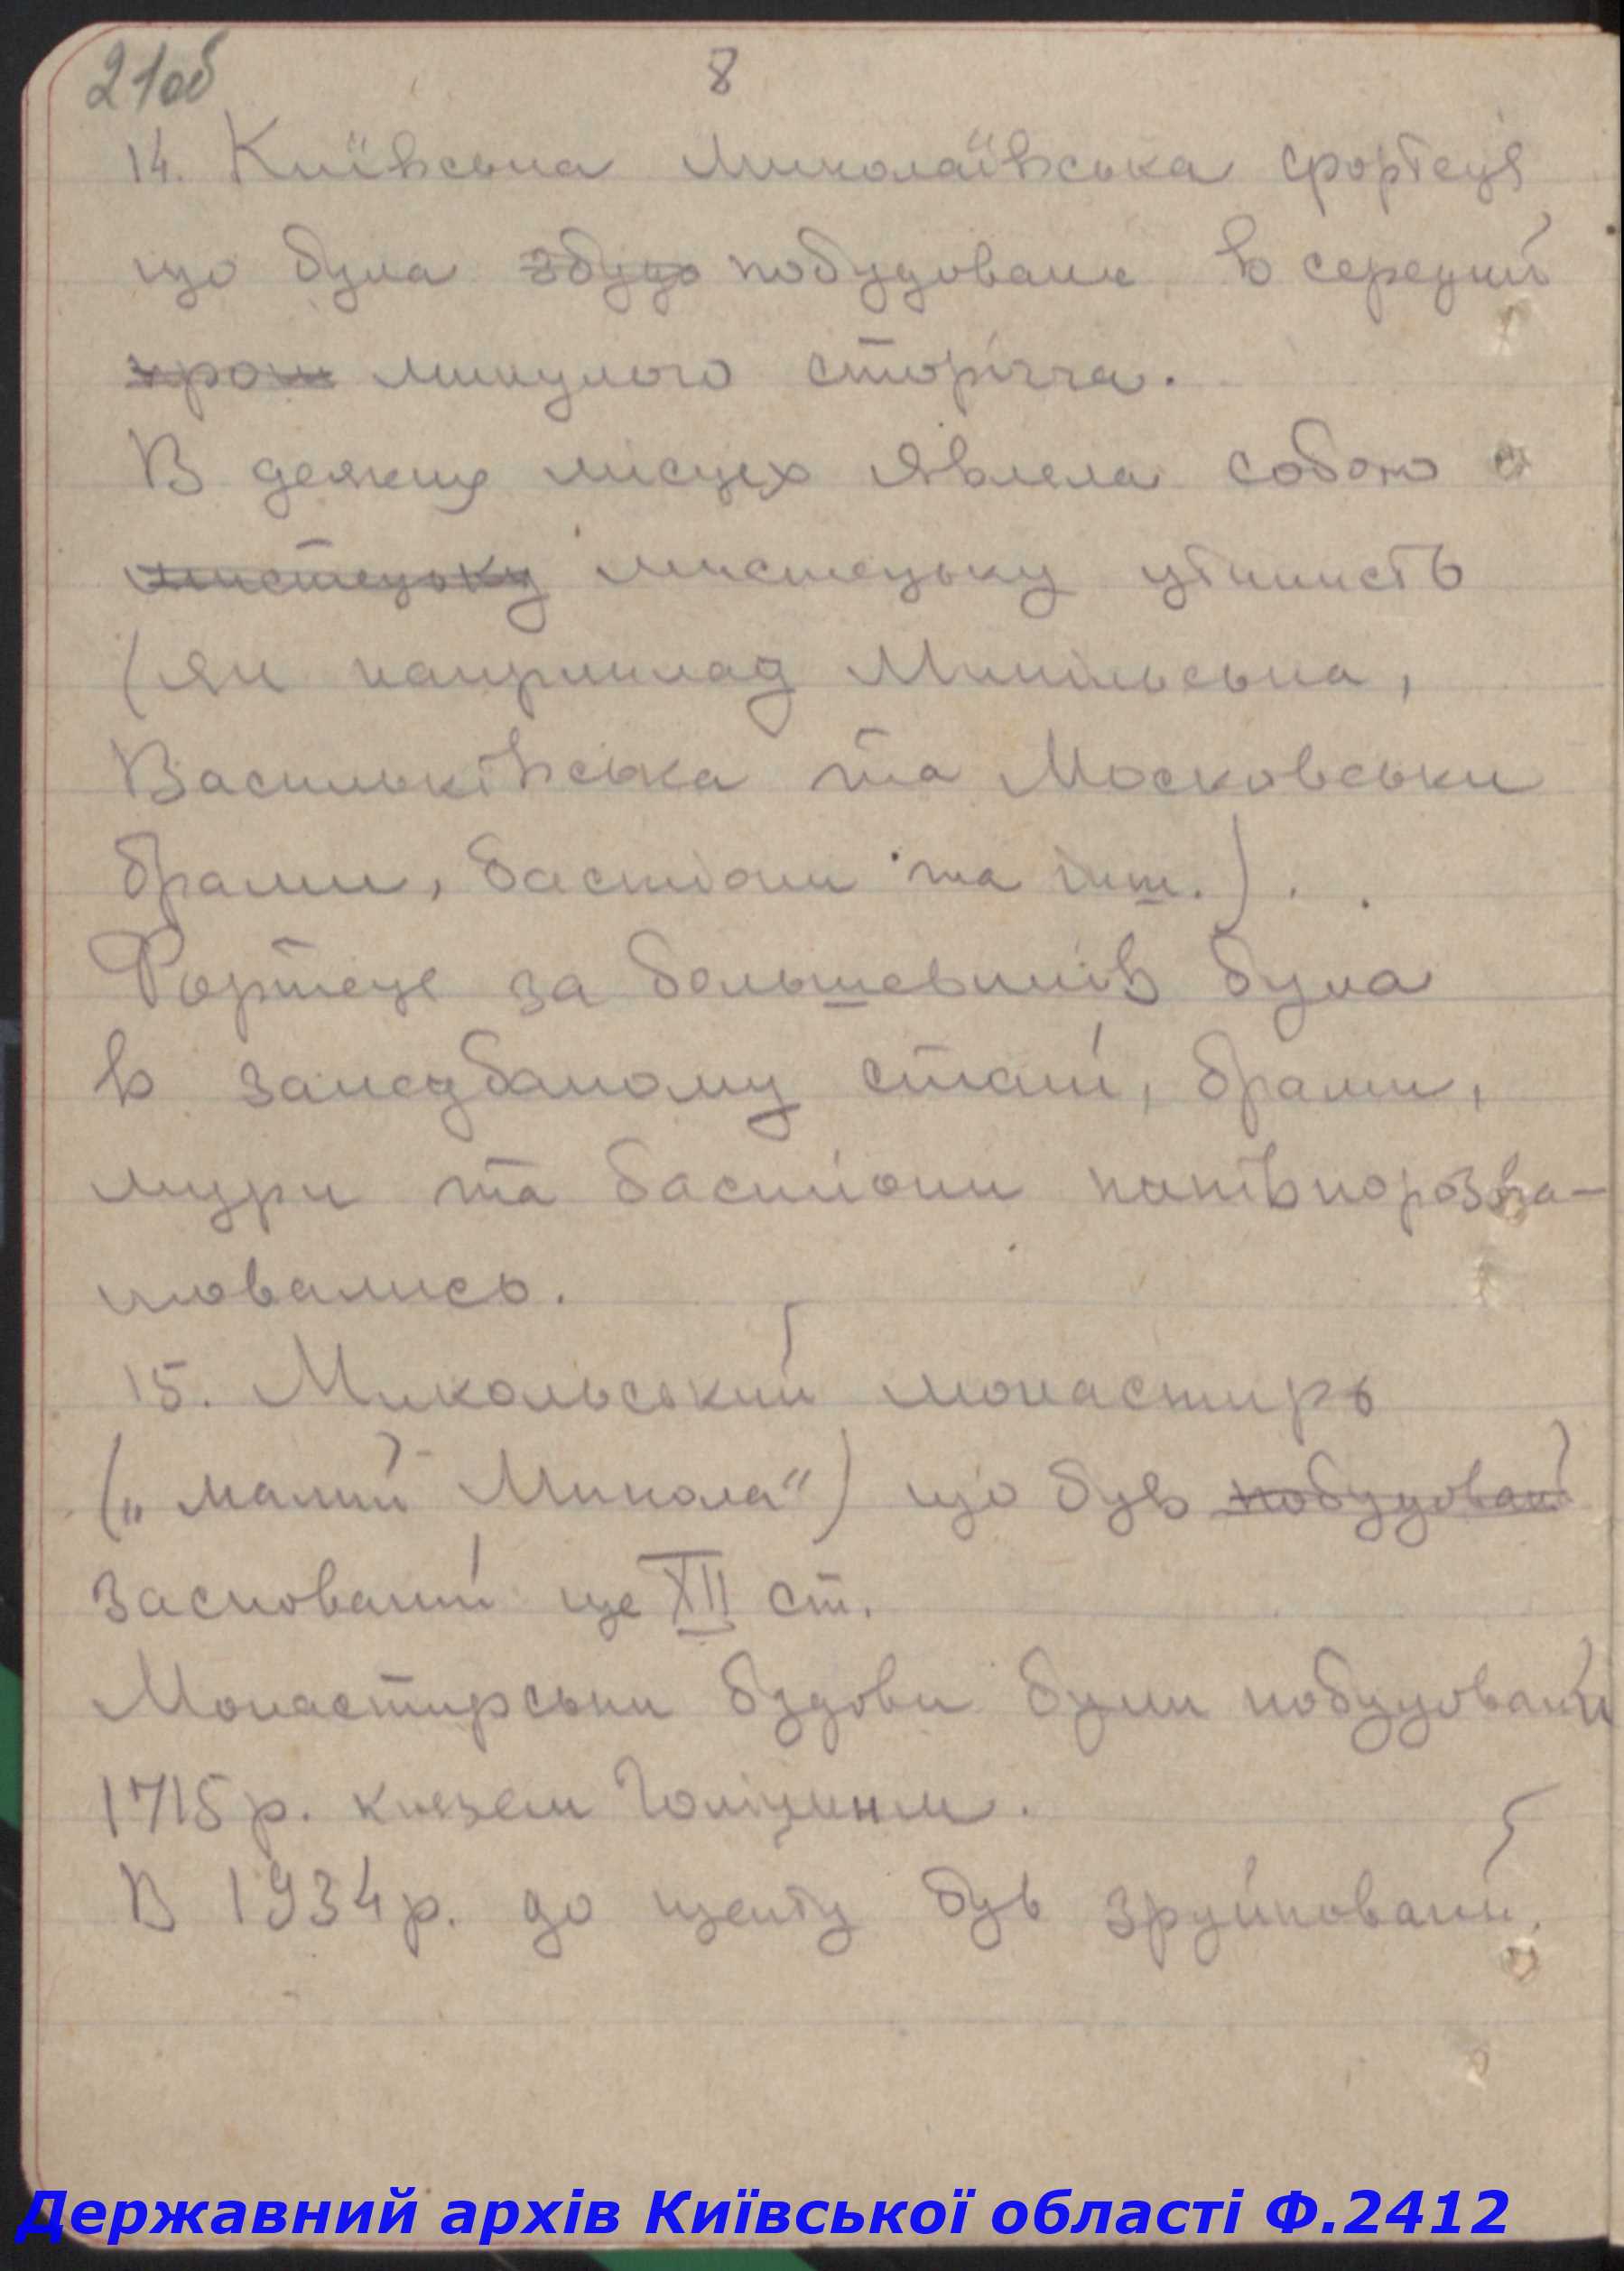 21об
8
14. Київська Миколаївська фортеця
що була збудо побудована в середині
минулого сторіччя.
В деяких місцях являла собою
мистецьку мистецьку цінність
(як наприклад Микільська,
Васильківська та Московська
брами, бастіони та інш.).
Фортеця за большевиків була
в занедбаному стані, брами,
мури та бастіони напівпорозва-
лювались.
15. Микольський монастирь
(„малий Микола") що був побудован
заснований ще XII ст.
Монастирськи будови були побудовани
1715 р. князем Голіциним.
В 1934 р. до щенту був зруйнований.
Державний архів Київської області Ф.2412